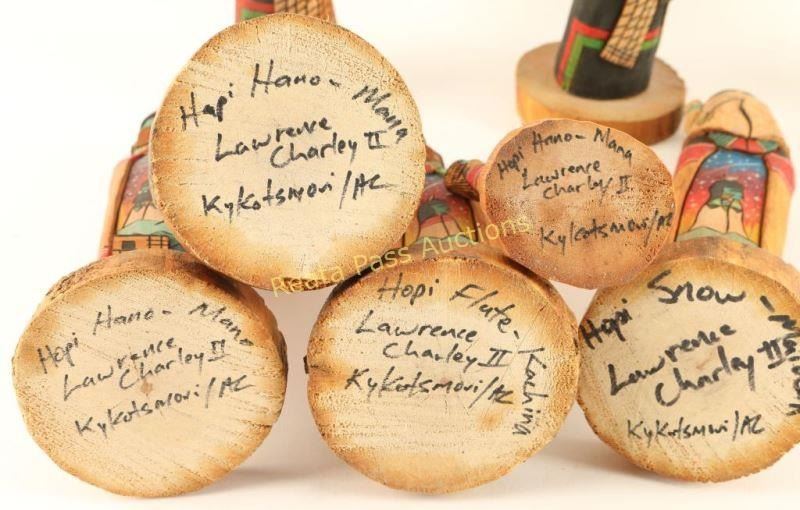 Hopi Hano-Mana
Lawrence
Charley II
Kykotsmovi/AZ
Hopi Hano-Mana
Lawrence
Charley II
Kykotsmovi/AZ
Hopi Hano-Mana
Lawrence
Charley II
Kykotsmovi/AZ
Hopi Flute-Kachina
Lawrence
Charley II
Kykotsmovi/AZ
Hopi Snow-
Lawrence
Charley II
Kykotsmovi/AZ
Reata Pass Auctions